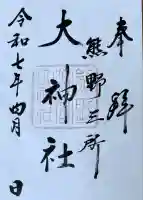 奉拝
熊野三所
大神社
令和七年四月 日